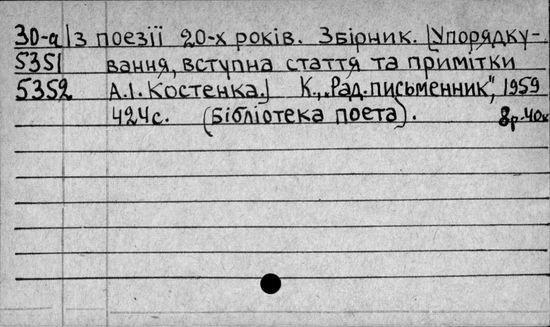 30-а Із поезії 20-х років. Збірник. [Упорядку-
5351 вання, вступна стаття та примітки
5352 А.І. Костенка.] К., „Рад. письменник", 1959
424с. (Бібліотека поета). 8р.40к